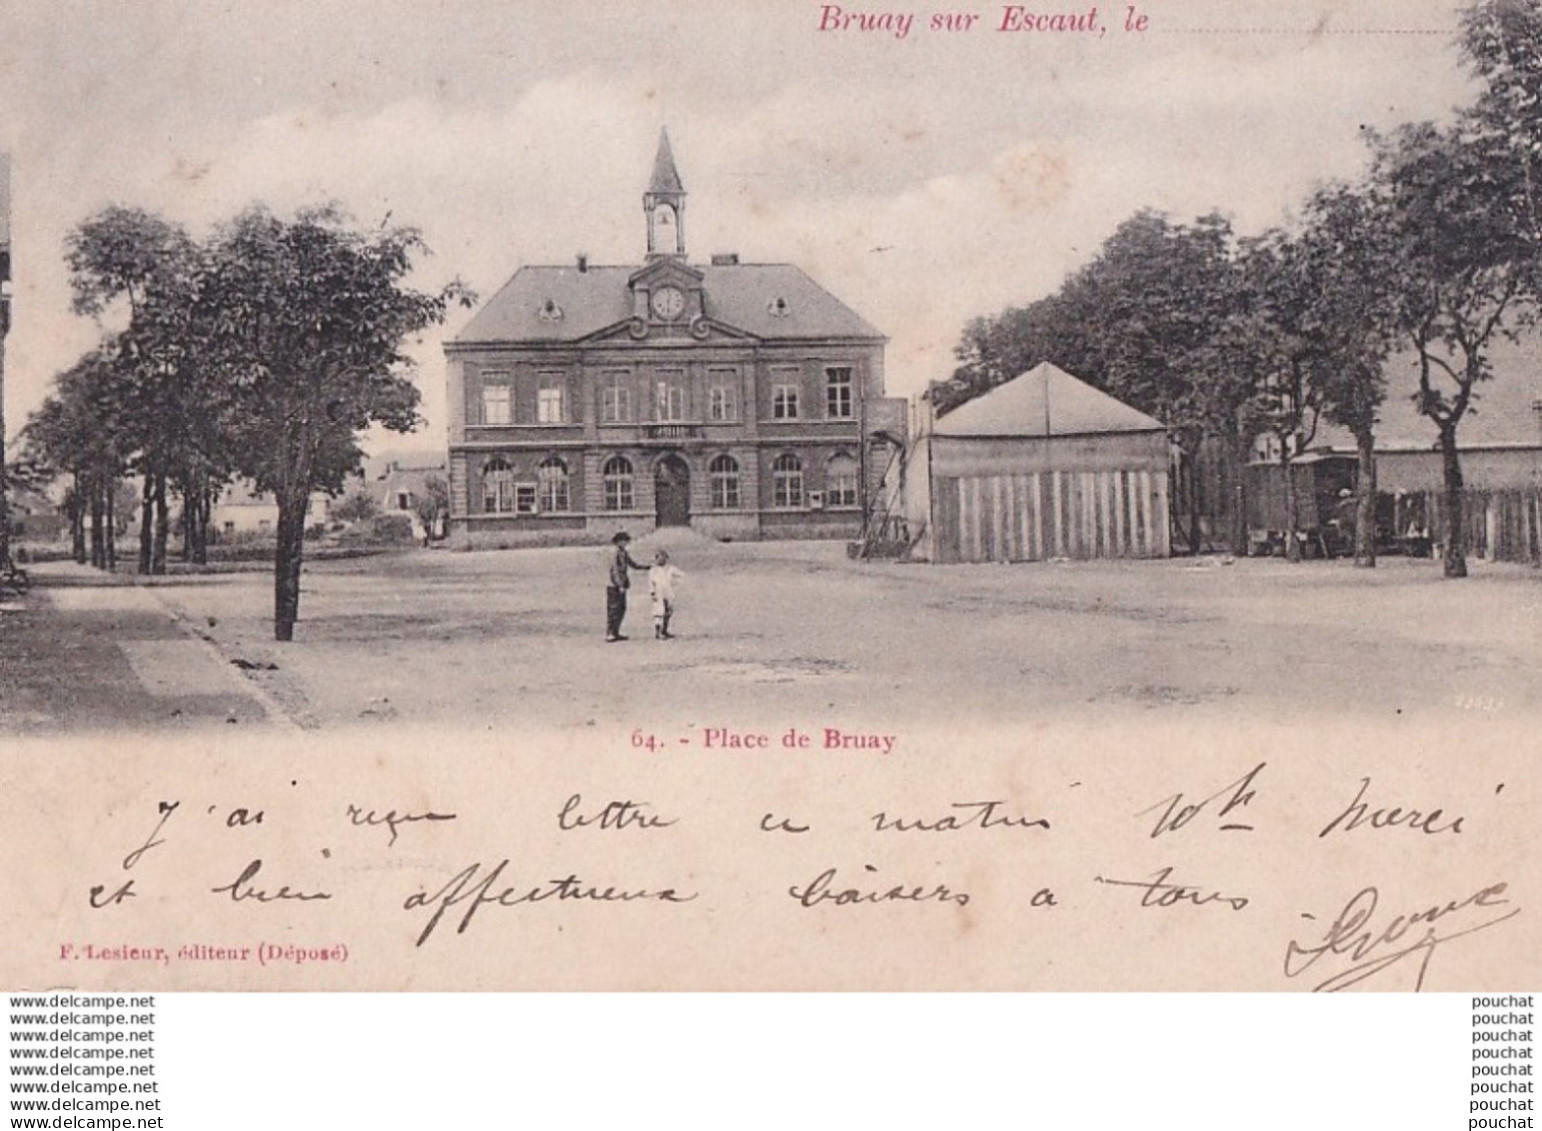 Bruay sur Escaut, le
64. - Place de Bruay
J'ai reçu lettre ce matin 10h Merci
et bien affectueux baisers a tous
F. Lesieur, éditeur (Déposé)
www.delcampe.net
www.delcampe.net
www.delcampe.net
www.delcampe.net
www.delcampe.net
www.delcampe.net
www.delcampe.net
www.delcampe.net
pouchat
pouchat
pouchat
pouchat
pouchat
pouchat
pouchat
pouchat